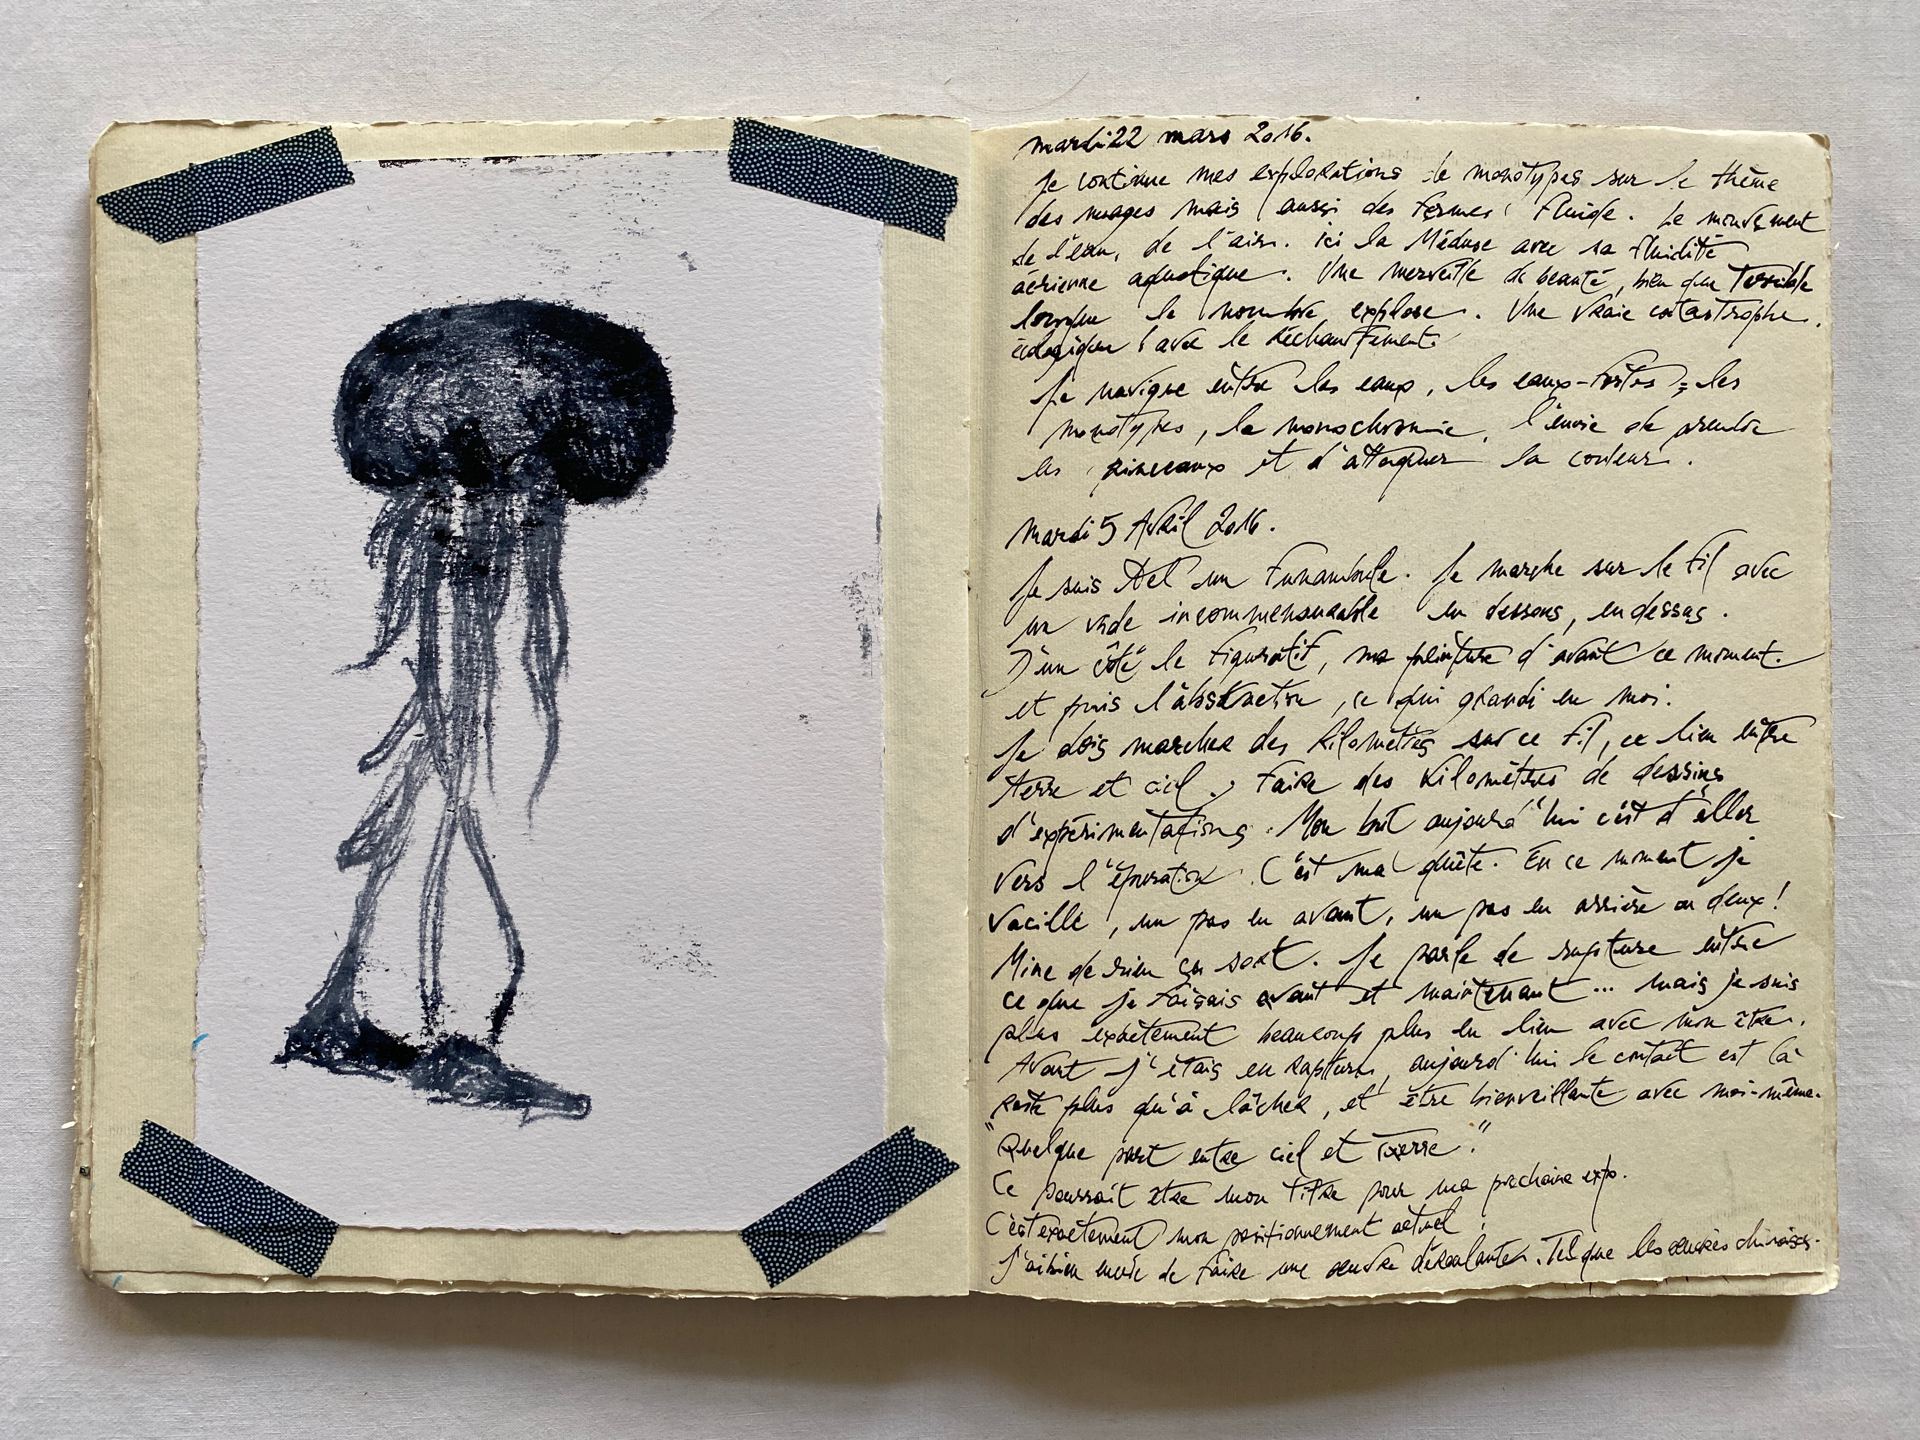 mardi 22 mars 2016.
Je continue mes explorations de monotypes sur le thème
des nuages mais aussi des formes fluide. Le mouvement
de l'eau, de l'air. Ici la Méduse avec sa fluidité
aérienne aquatique. Une merveille de beauté, bien que terrible
lorsque le nombre explose. Une vraie catastrophe
écologique avec le réchauffement.
Je navigue entre les eaux, les eaux-fortes, les
monotypes, la monochromie, l'envie de prendre
les pinceaux et d'attaquer la couleur.
mardi 5 Avril 2016.
Je suis tel un funambule. Je marche sur le fil avec
un vide incommensurable en dessous, en dessus.
D'un côté le figuratif, ma peinture d'avant ce moment.
et puis l'abstraction, ce qui grandi en moi.
Je dois marcher des kilomètres sur ce fil, ce lien entre
terre et ciel. Faire des kilomètres de dessins
d'expérimentations. Mon but aujourd'hui c'est d'aller
vers l'épuration. C'est ma quête. En ce moment je
vacille, un pas en avant, un pas en arrière ou deux!
Mine de rien ça sort. Je parle de rupture entre
ce que je faisais avant et maintenant... mais je suis
plus exactement beaucoup plus en lien avec mon être.
Avant j'étais en rupture, aujourd'hui le contact est là
reste plus qu'à lâcher, et être bienveillante avec moi-même.
"Quelque part entre ciel et terre."
Ce pourrait etre mon titre pour ma prochaine expo.
C'est exactement mon positionnement actuel.
J'ai bien envie de faire une oeuvre déroulante. Tel que les chinoises.